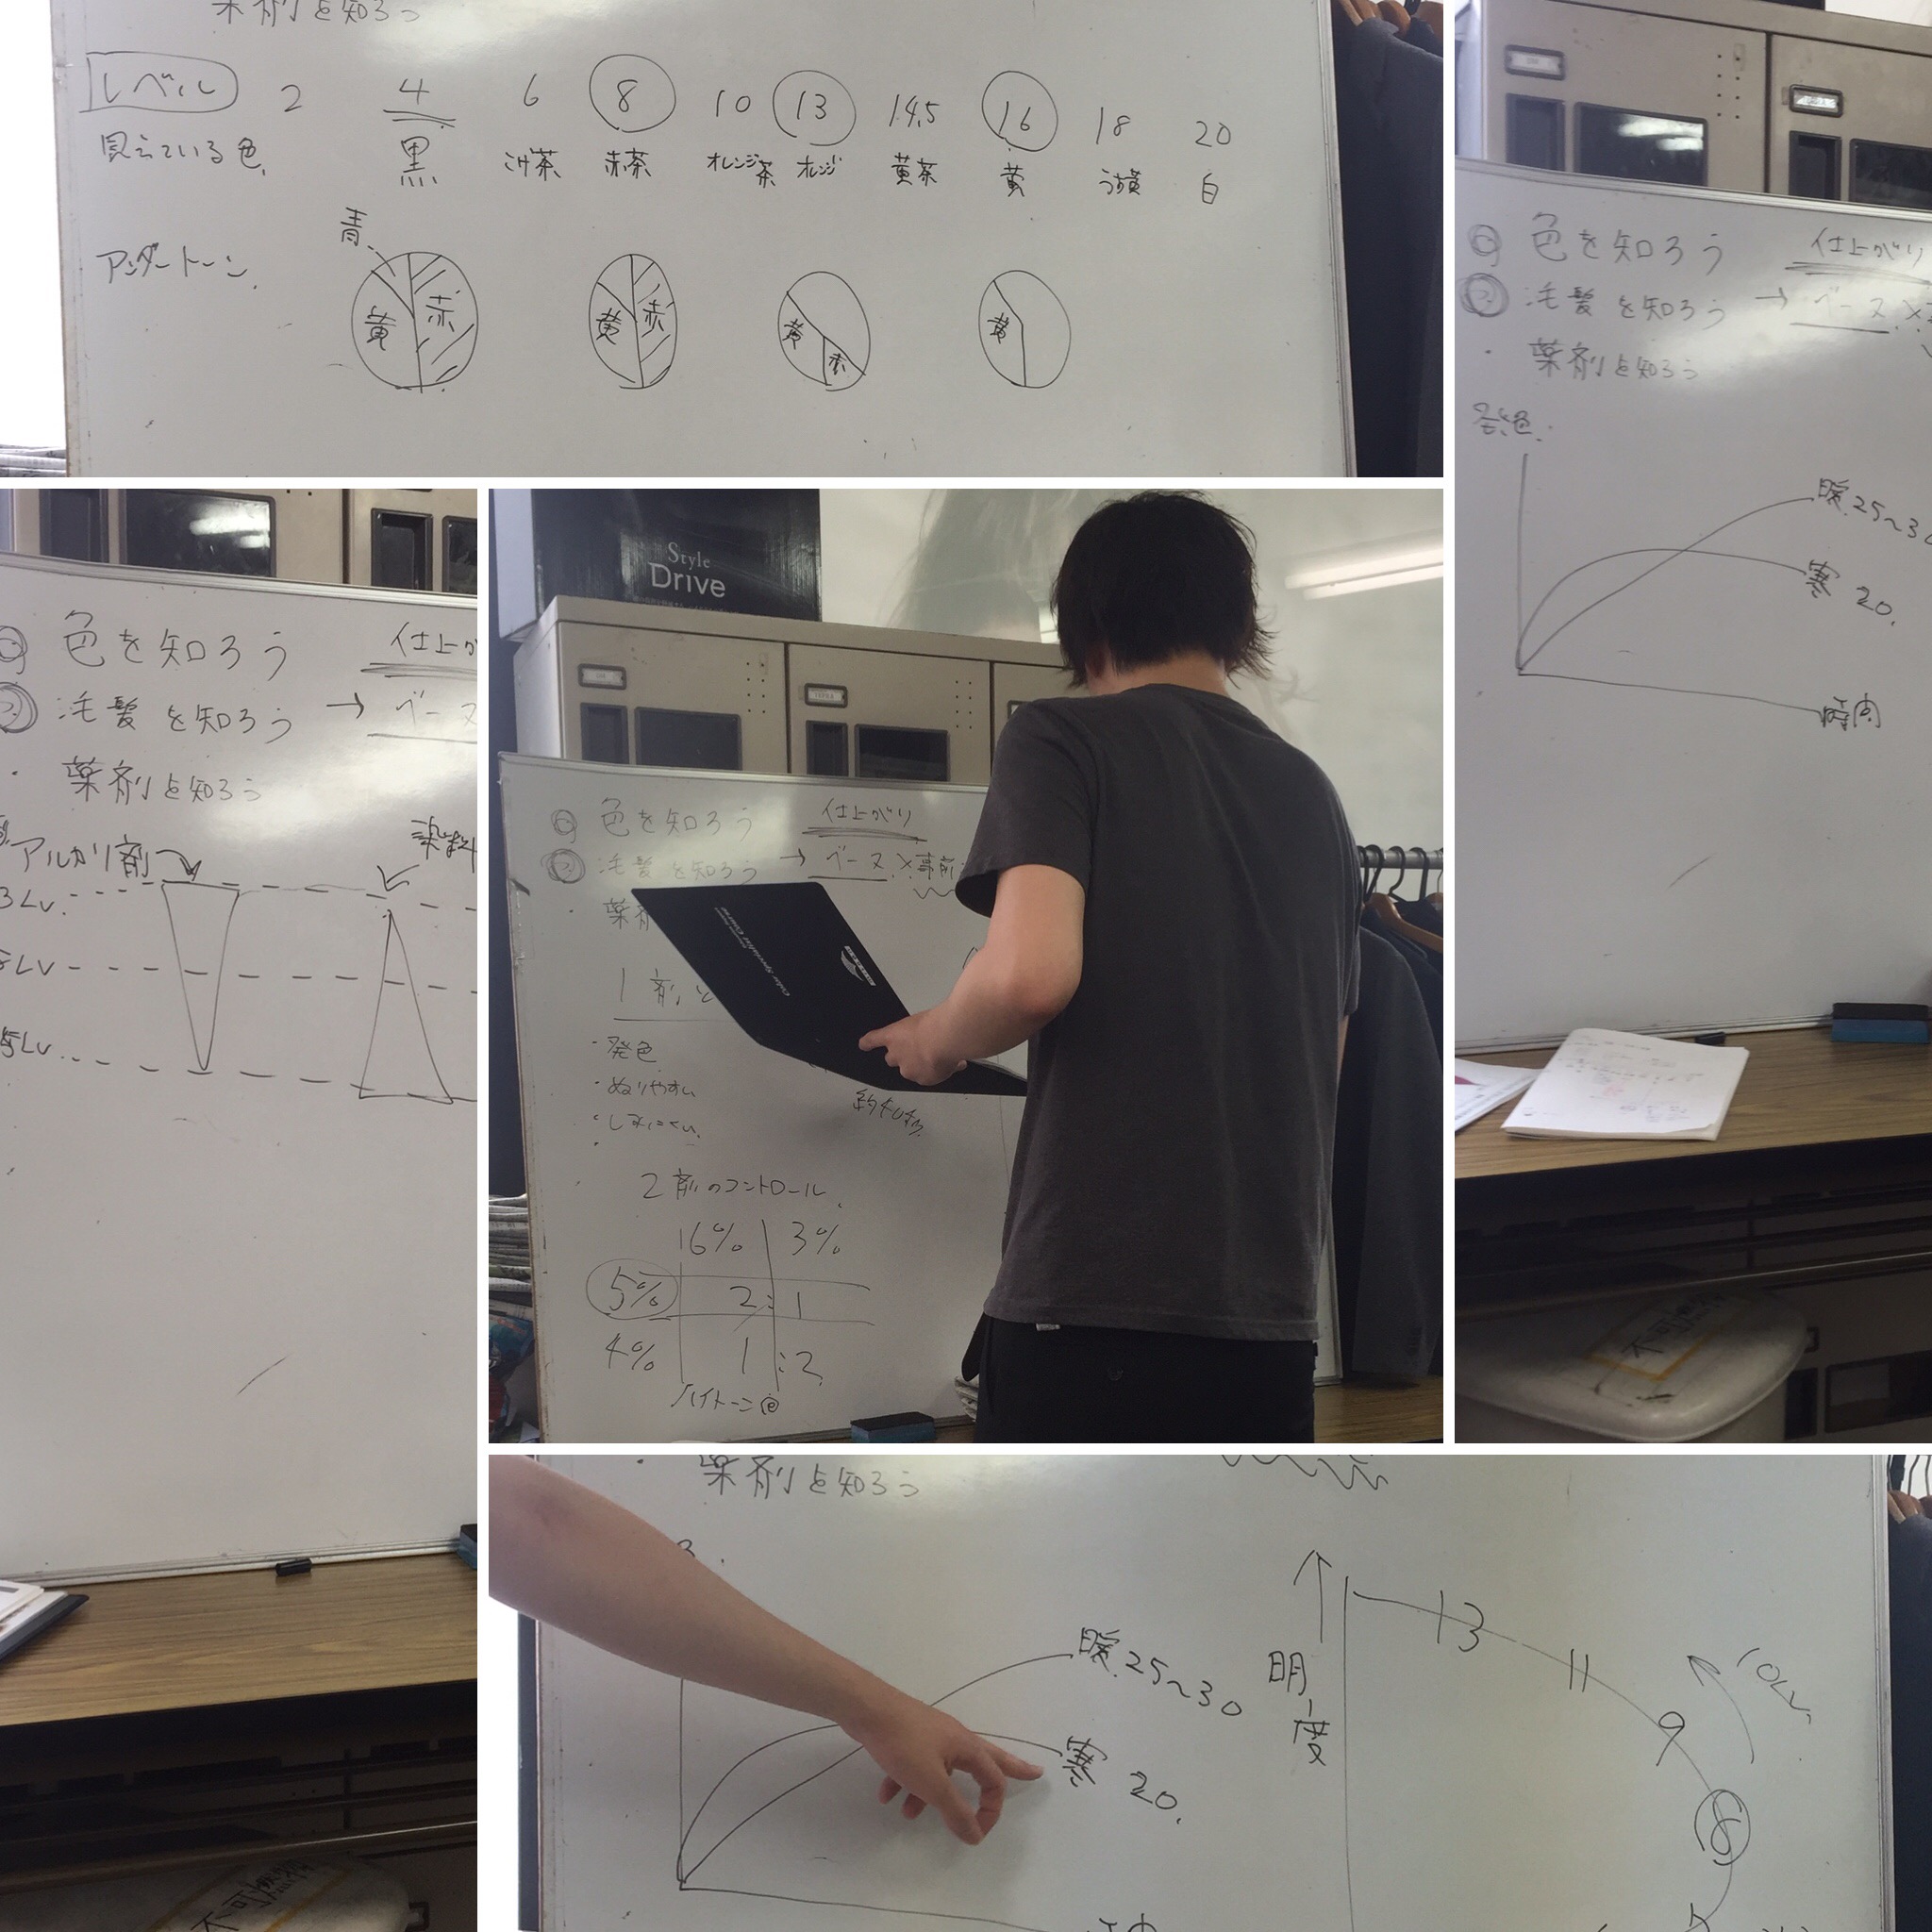 薬剤を知ろう
レベル 2 4 6 8 10 13 14.5 16 18 20
見えている色 黒 こげ茶 赤茶 オレンジ茶 オレンジ 黄茶 黄 うす黄 白
青
アンダートーン
黄 赤 黄 赤 黄 赤 黄
色を知ろう 仕上がり
毛髪を知ろう → ベース ×
・ 薬剤を知ろう
発色
暖 25~3
寒 20.
時間
不可燃
色を知ろう 仕上が
毛髪を知ろう → ベース
・ 薬剤を知ろう
アルカリ剤 染料
3Lv.
LV
5Lv
不可燃
Style
Drive
色を知ろう 仕上がり
毛髪を知ろう → ベース × 事前
・ 薬剤
1剤
・発色
・ぬりやすい
・しみにくい
2剤のコントロール
16% 3%
5% 2:1
4% 1:2
ハイトーン
Color Specialist Course
薬剤を知ろう
暖 25~30
寒 20.
明度
13
11
9
8
10Lv